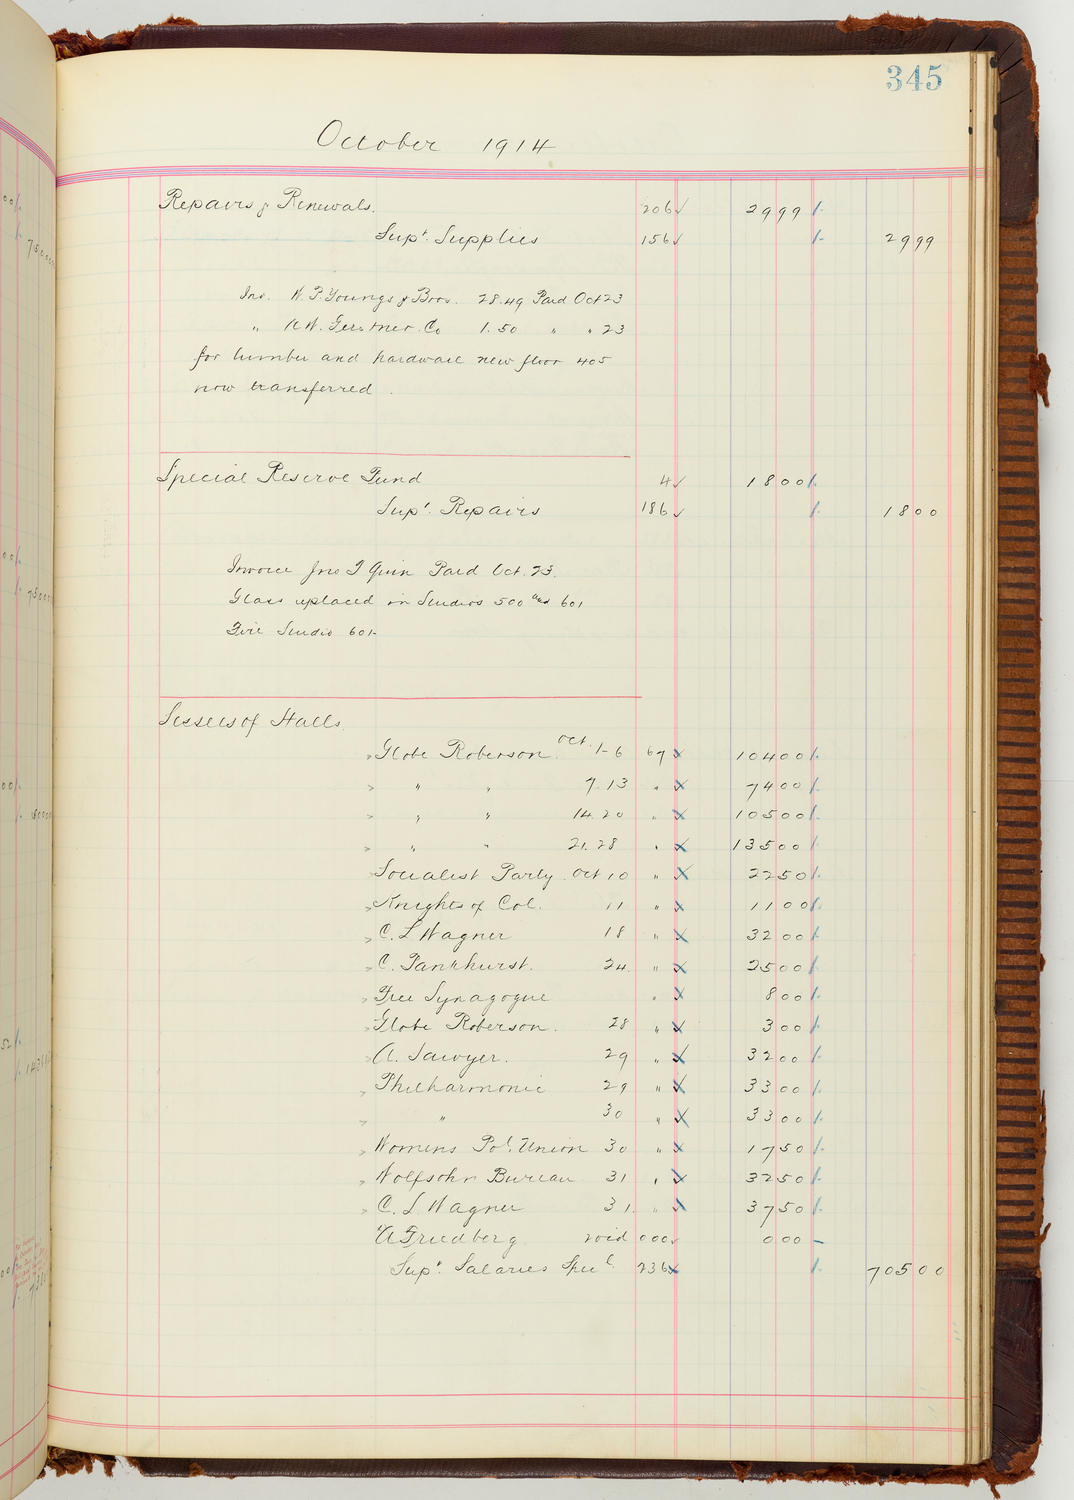 345
October 1914
Repairs & Renewals. 206 2999
Supt. Supplies 156 2999
Inv. W. P. Youngs & Bros. 28.49 Paid Oct 23
" A.W. Gerstner Co 1.50 " " 23
for lumber and hardware new floor 405
now transferred.
Special Reserve Fund 4 1800
Supt. Repairs 186 1800
Invoice Jno J Quin Paid Oct. 23.
Glass replaced in Studios 500 and 601
Fire Studio 601-
Lessees of Halls.
Globe Roberson. Oct. 1-6 67 10400
" " 7.13 " 7400
" " 14.20 " 10500
" " 21.28 " 13500
Socialist Party. Oct 10 " 2250
Knights of Col. 11 " 1100
C. L Wagner 18 " 3200
C. Pankhurst. 24. " 2500
Free Synagogue " 800
Globe Roberson. 28 " 300
A. Sawyer. 29 " 3200
Philharmonic 29 " 3300
" 30 " 3300
Womens Pol. Union 30 " 1750
Wolfsohn Bureau 31 " 3250
C. L Wagner 31. " 3750
A Friedberg void 000 000 -
Supt. Salaries Specl 236 70500